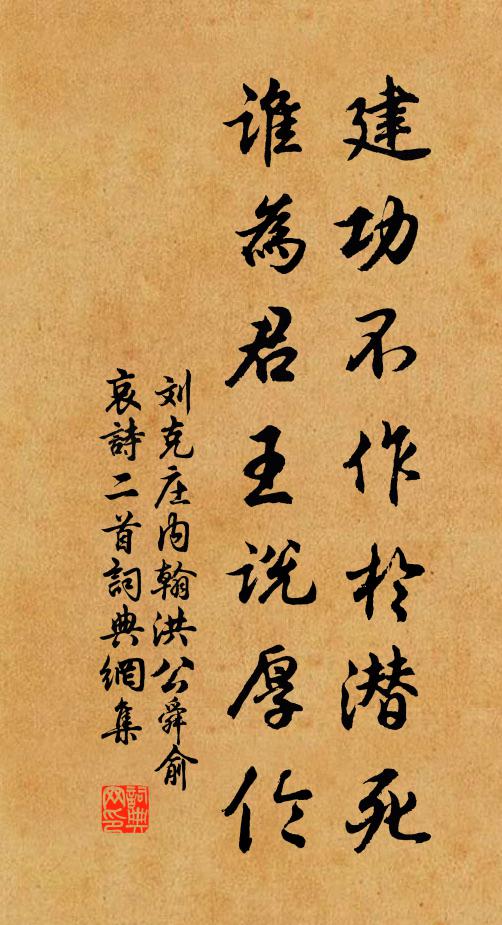 建功不作於潜死
誰為君王説厚伶
刘克庄内翰洪公舜俞
哀詩二首詞典網集
詞典
网印